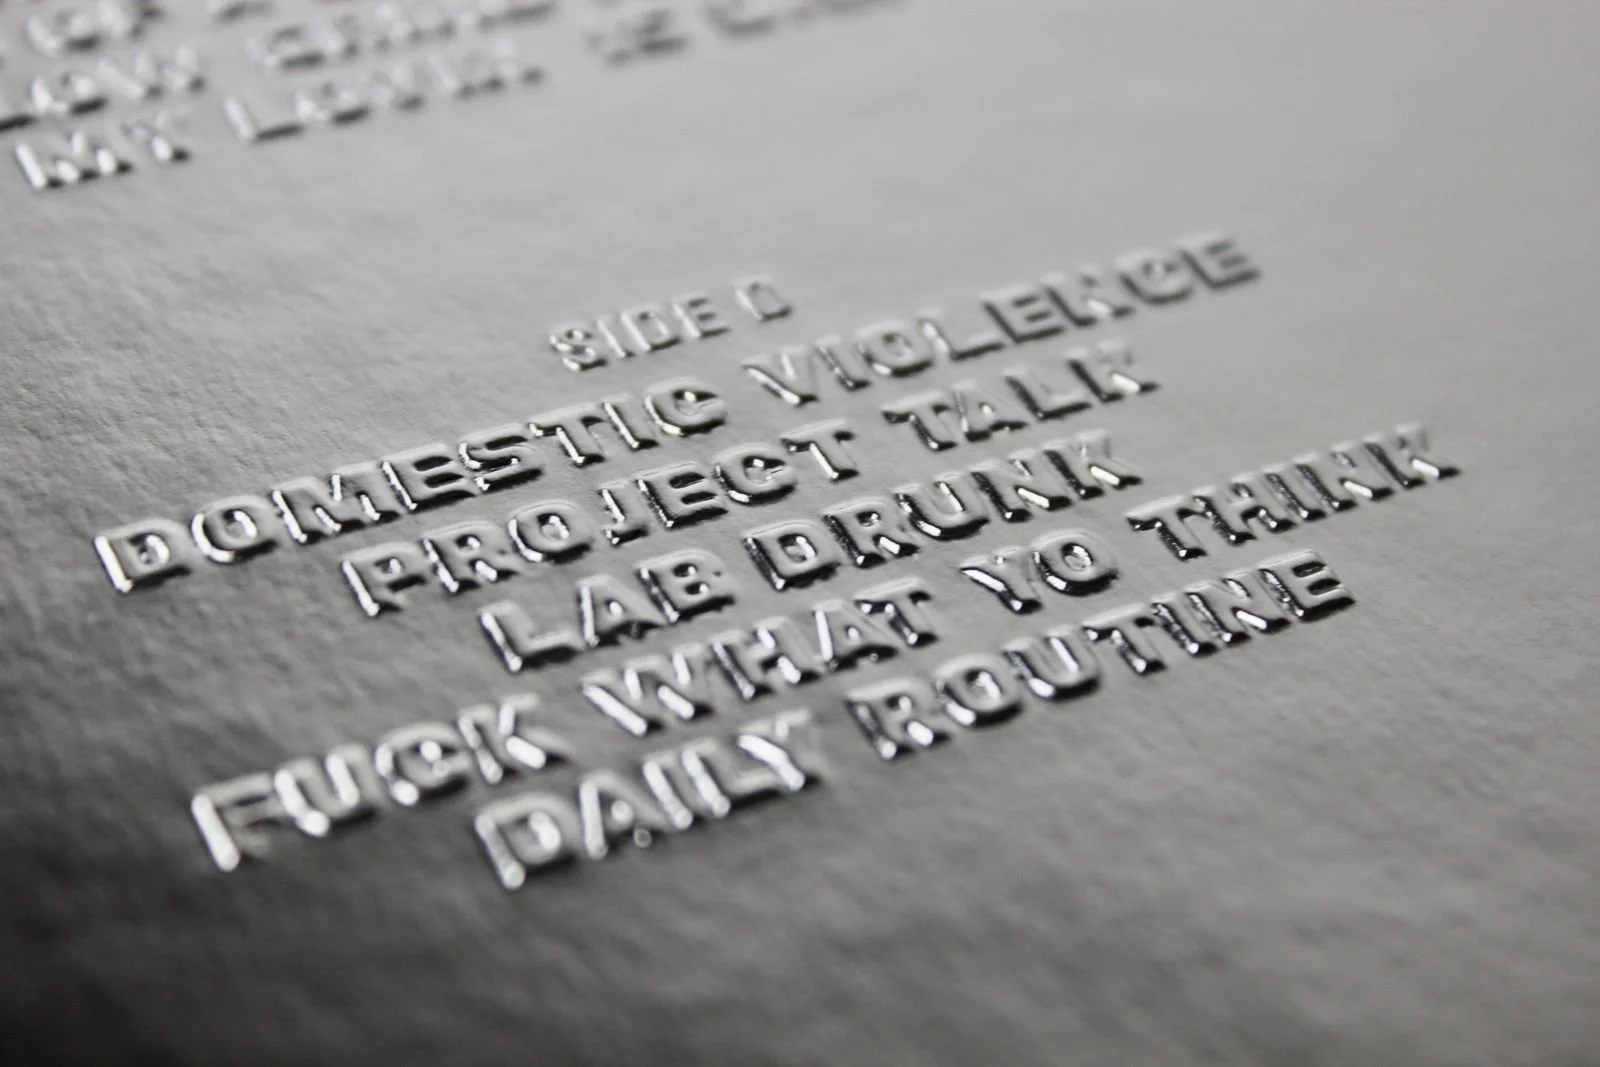 LOW
MY LOVIN
SIDE D
DOMESTIC VIOLENCE
PROJECT TALK
LAB DRUNK
FUCK WHAT YO THINK
DAILY ROUTINE